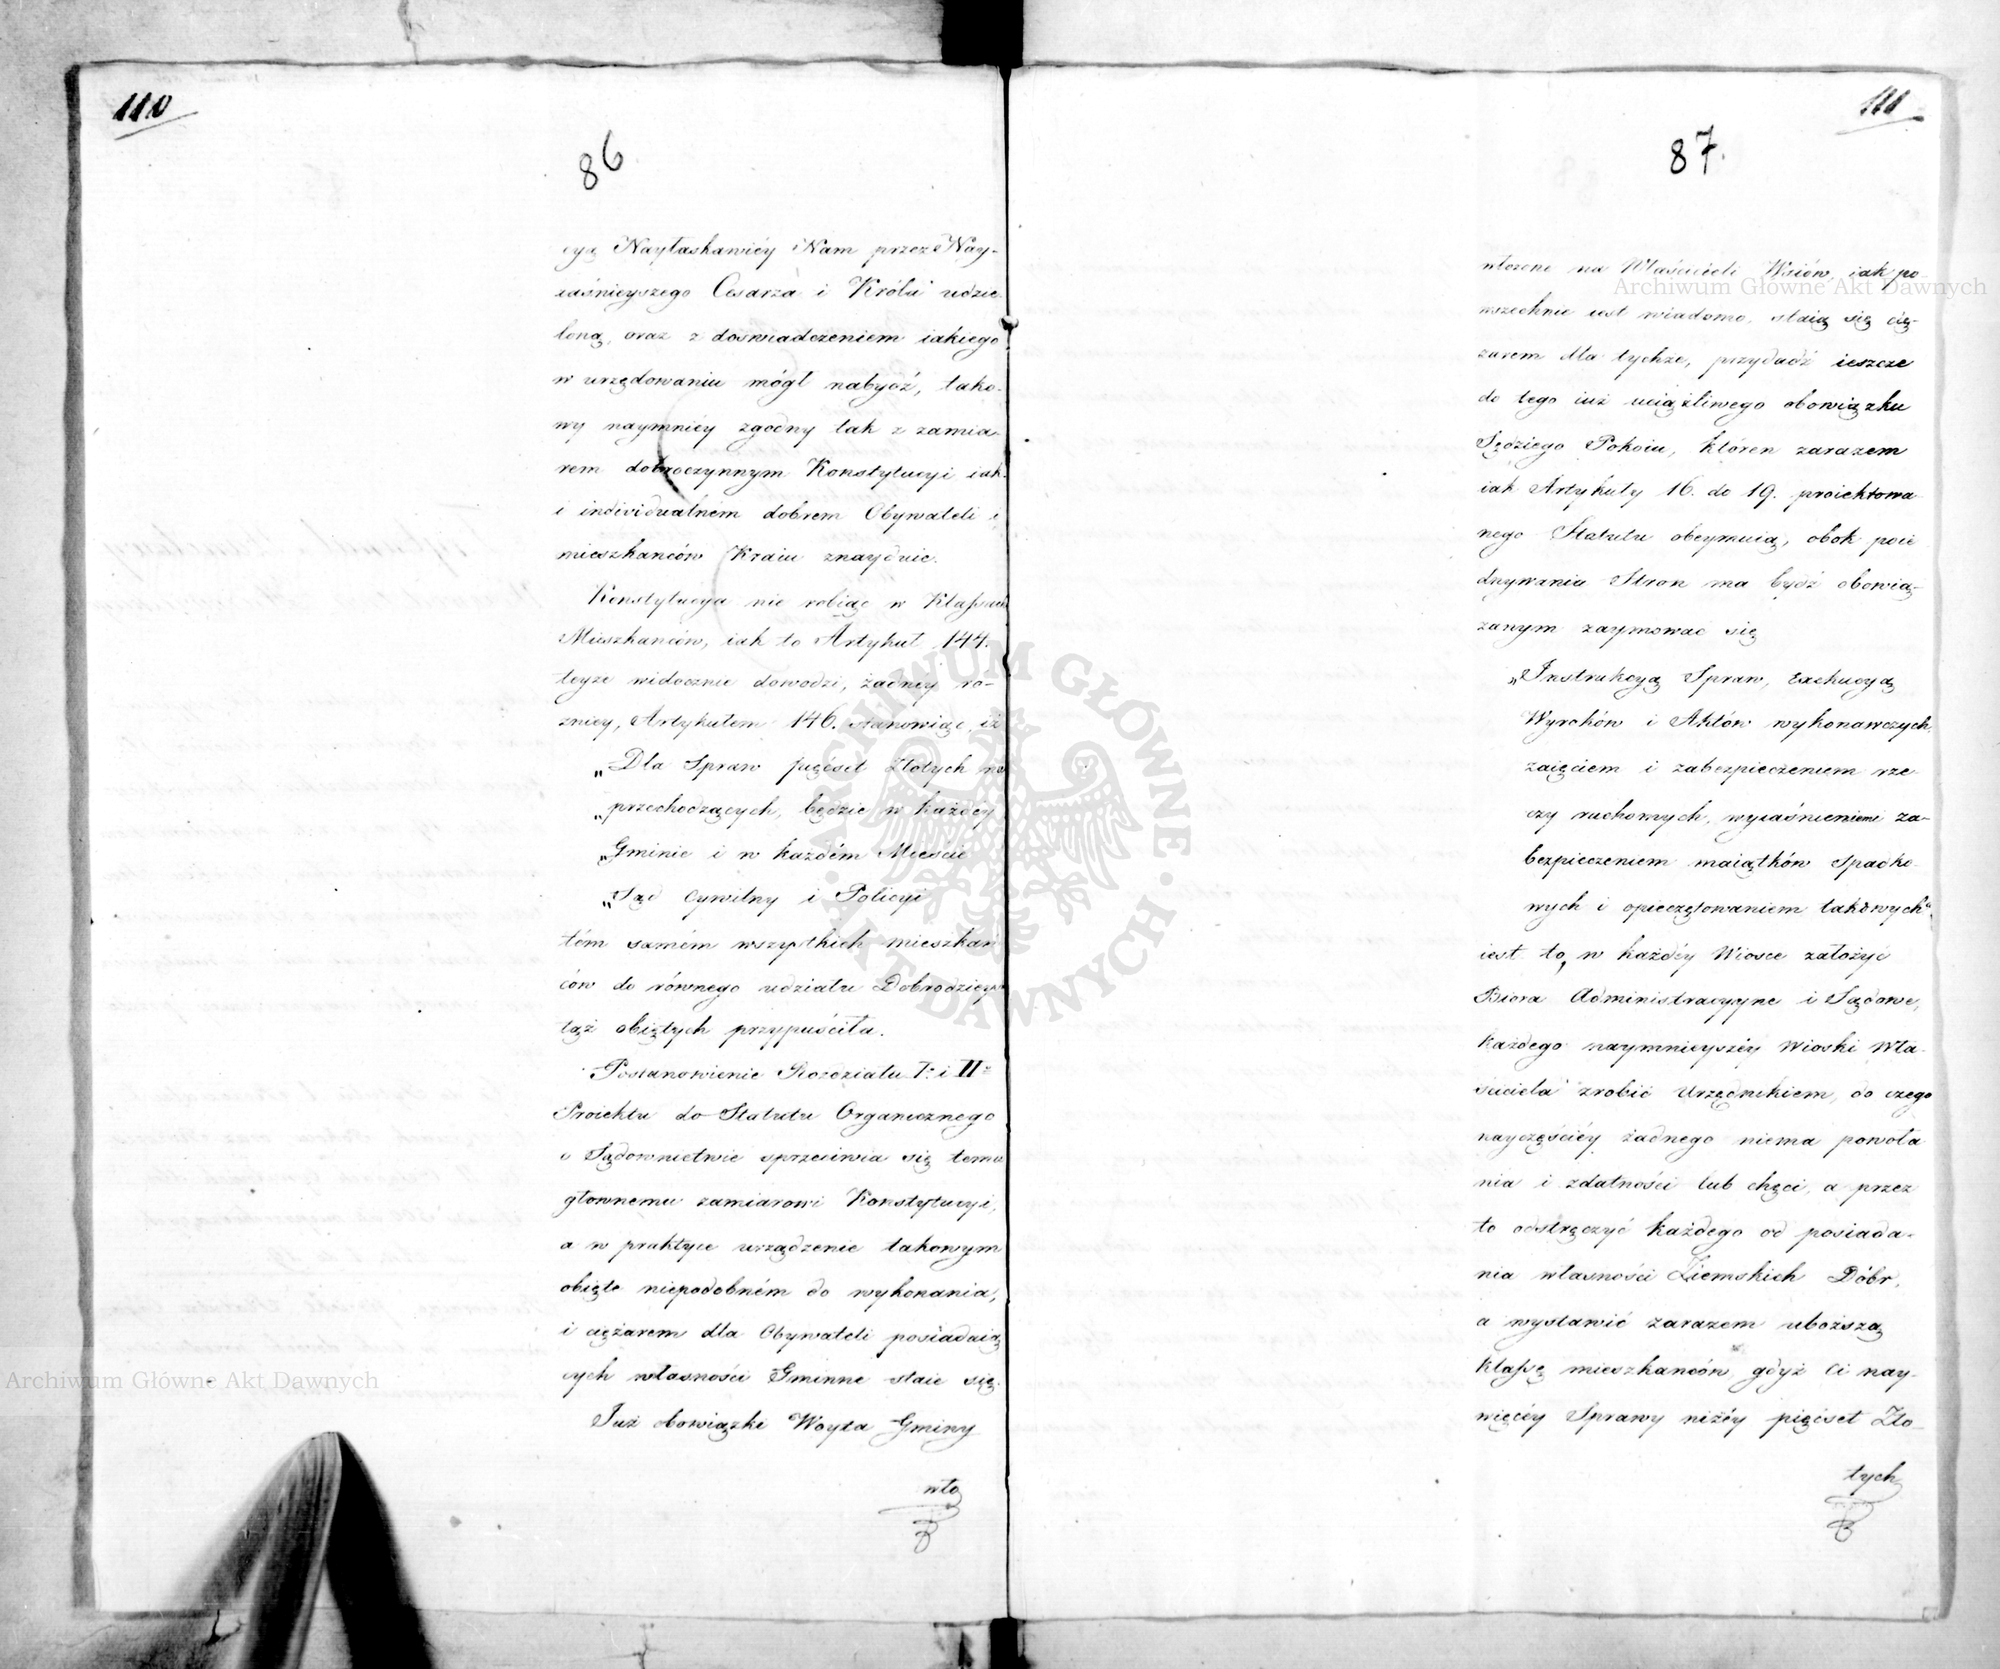 110
86
cyą Nayłaskawiéy Nam przez Nay-
iaśnieyszego Cesarza i Króla udzie-
loną, oraz z doswiadczeniem iakiego
w urzędowaniu mógł nabydź, tako-
wy naymniéy zgodny tak z zamia-
rem dobroczynnym Konstytucyi iak
i individualném dobrem Obywateli i
mieszkańców Kraiu znayduie.
Konstytucya nie robiąc w Klassach
Mieszkańców, iak to Artykuł 144.
teyże widocznie dowodzi, żadnéy ró-
żnicy, Artykułem 146. stanowiąc, iż
„Dla Spraw pięćset Złotych nie
„przechodzących, będzie w każdéy
„Gminie i w każdém Mieście
„Sąd Cywilny i Policyi
tém samém wszystkich mieszkań
ców do równego udziału Dobrodzieystw
tąż obiętych przypuściła.
Postanowienie Rozdziału I. i II.
Proiektu do Statutu Organicznego
o Sądownictwie sprzeciwia się temu
głownemu zamiarowi Konstytucyi,
a w praktyce urządzenie takowym
obięte niepodobném do wykonania,
i ciężarem dla Obywateli posiadaią
cych własności Gminne staie się.
Już obowiązki Woyta Gminy
wło
111
87.
włożone na Właścicieli Wsiów, iak po-
wszechnie iest wiadomo, staią się cię-
żarem dla tychże, przydadź ieszcze
do tego iuż uciążliwego obowiązku
Sędziego Pokoiu, któren zarazem
iak Artykuły 16. do 19. proiektowa
nego Statutu obeymuią, obok poie
dnywania Stron ma bydź obowią-
zanym zaymować się
„Instrukcyą Spraw, Exekucyą
Wyroków i Aktów wykonawczych,
zaięciem i zabezpieczeniem rze-
czy ruchomych, wyiaśnieniem za-
bezpieczeniem maiątków Spadko-
wych i opieczętowaniem takowych“
iest to, w każdéy Wiosce założyć
Biora Administracyyne i Sądowe,
każdego naymnieyszéy Wioski Wła-
ściciela zrobić Urzędnikiem, do czego
nayczęściéy żadnego niema powoła
nia i zdatności lub chęci, a przez
to odstręczyć każdego od posiada-
nia własności Ziemskich Dóbr,
a wystawić zarazem uboższą
klassę mieszkańców, gdyż ci nay-
więcéy Sprawy niżéy pięćset Zło-
tych
Archiwum Główne Akt Dawnych
Archiwum Główne Akt Dawnych
ARCHIWUM GŁÓWNE AKT DAWNYCH